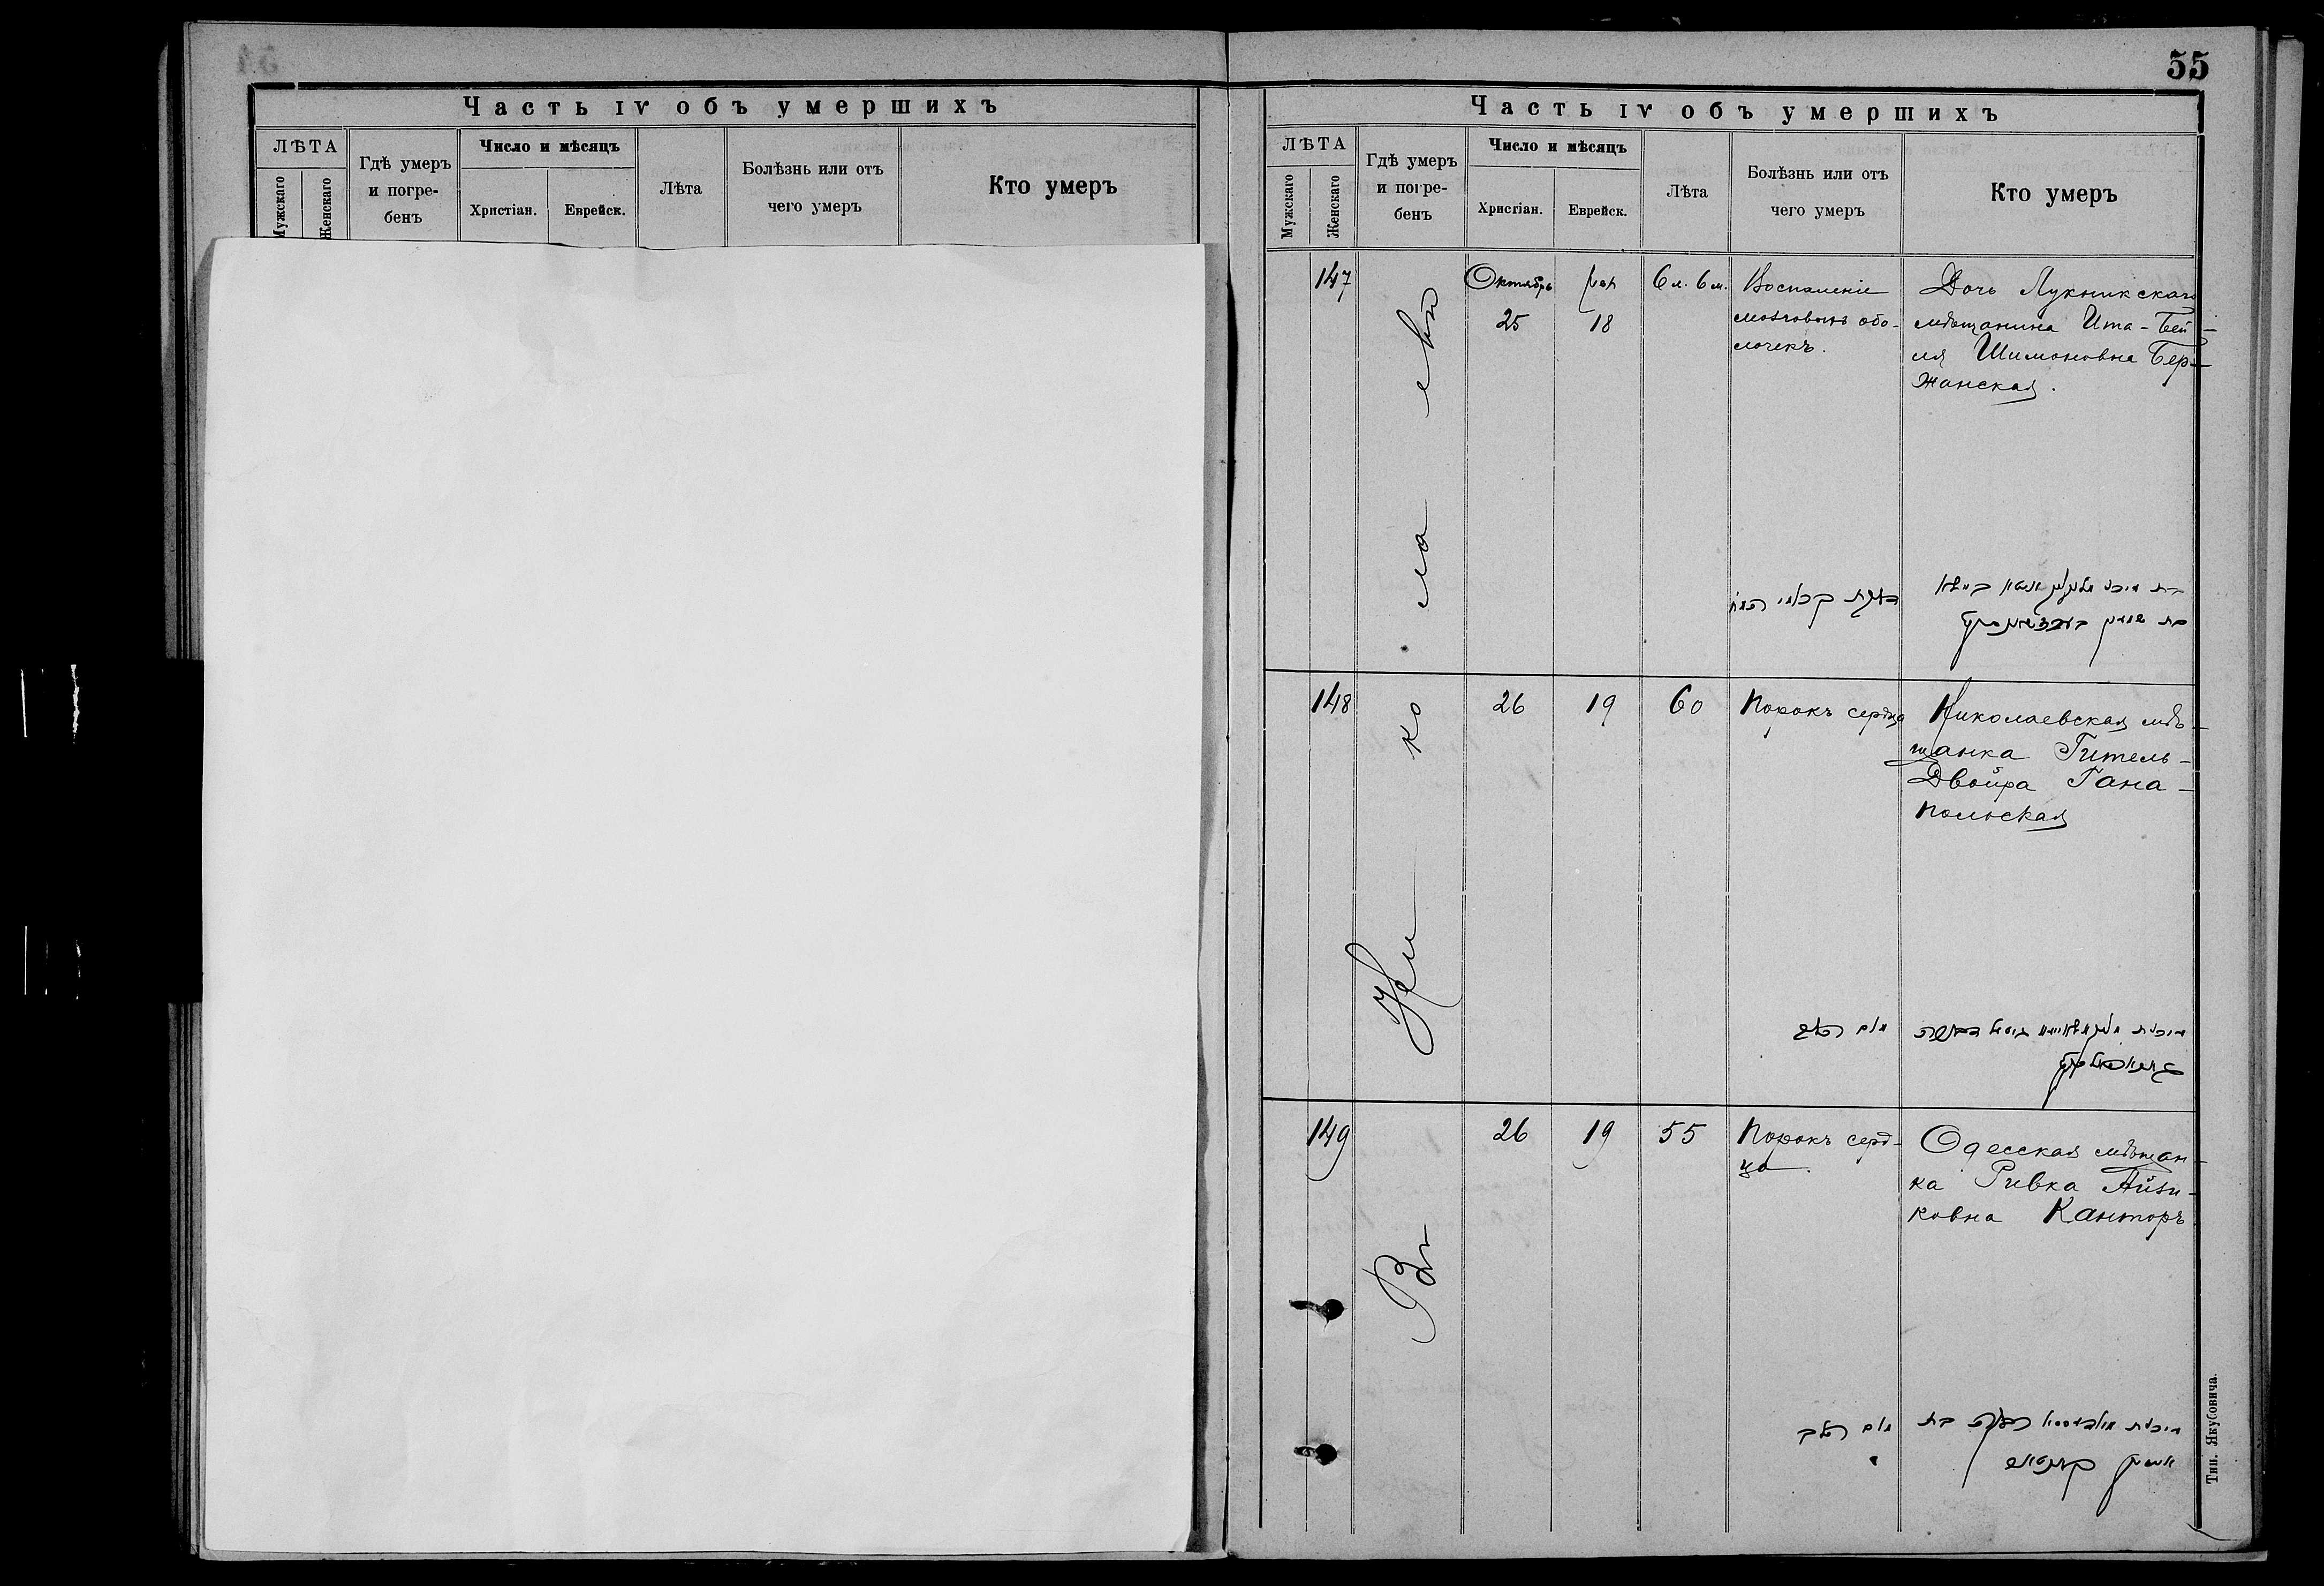 55
Часть IV объ умершихъ
ЛѢТА
Мужскаго
Женскаго
Гдѣ умеръ
и погре-
бенъ
Число и мѣсяцъ
Христіан.
Еврейск.
Лѣта
Болѣзнь или отъ
чего умеръ
Кто умеръ
Часть IV объ умершихъ
ЛѢТА
Мужскаго
Женскаго
Гдѣ умеръ
и погре-
бенъ
Число и мѣсяцъ
Христіан.
Еврейск.
Лѣта
Болѣзнь или отъ
чего умеръ
Кто умеръ
Въ Николаевѣ
147
Октябрь
25
18
6 л. 6 м.
Воспаленіе
мозговыхъ обо-
лочекъ.
Дочь Лукникскаго
мѣщанина Ита-Бей-
ля Шимоновна Бер-
жанская.
148
26
19
60
Порокъ сердца
Николаевская мѣ-
щанка Гитель-
Двойра Гана-
польская
149
26
19
55
Порокъ серд-
ца.
Одесская мѣщан-
ка Ривка Айзи-
ковна Канторъ
Тип. Якубовича.